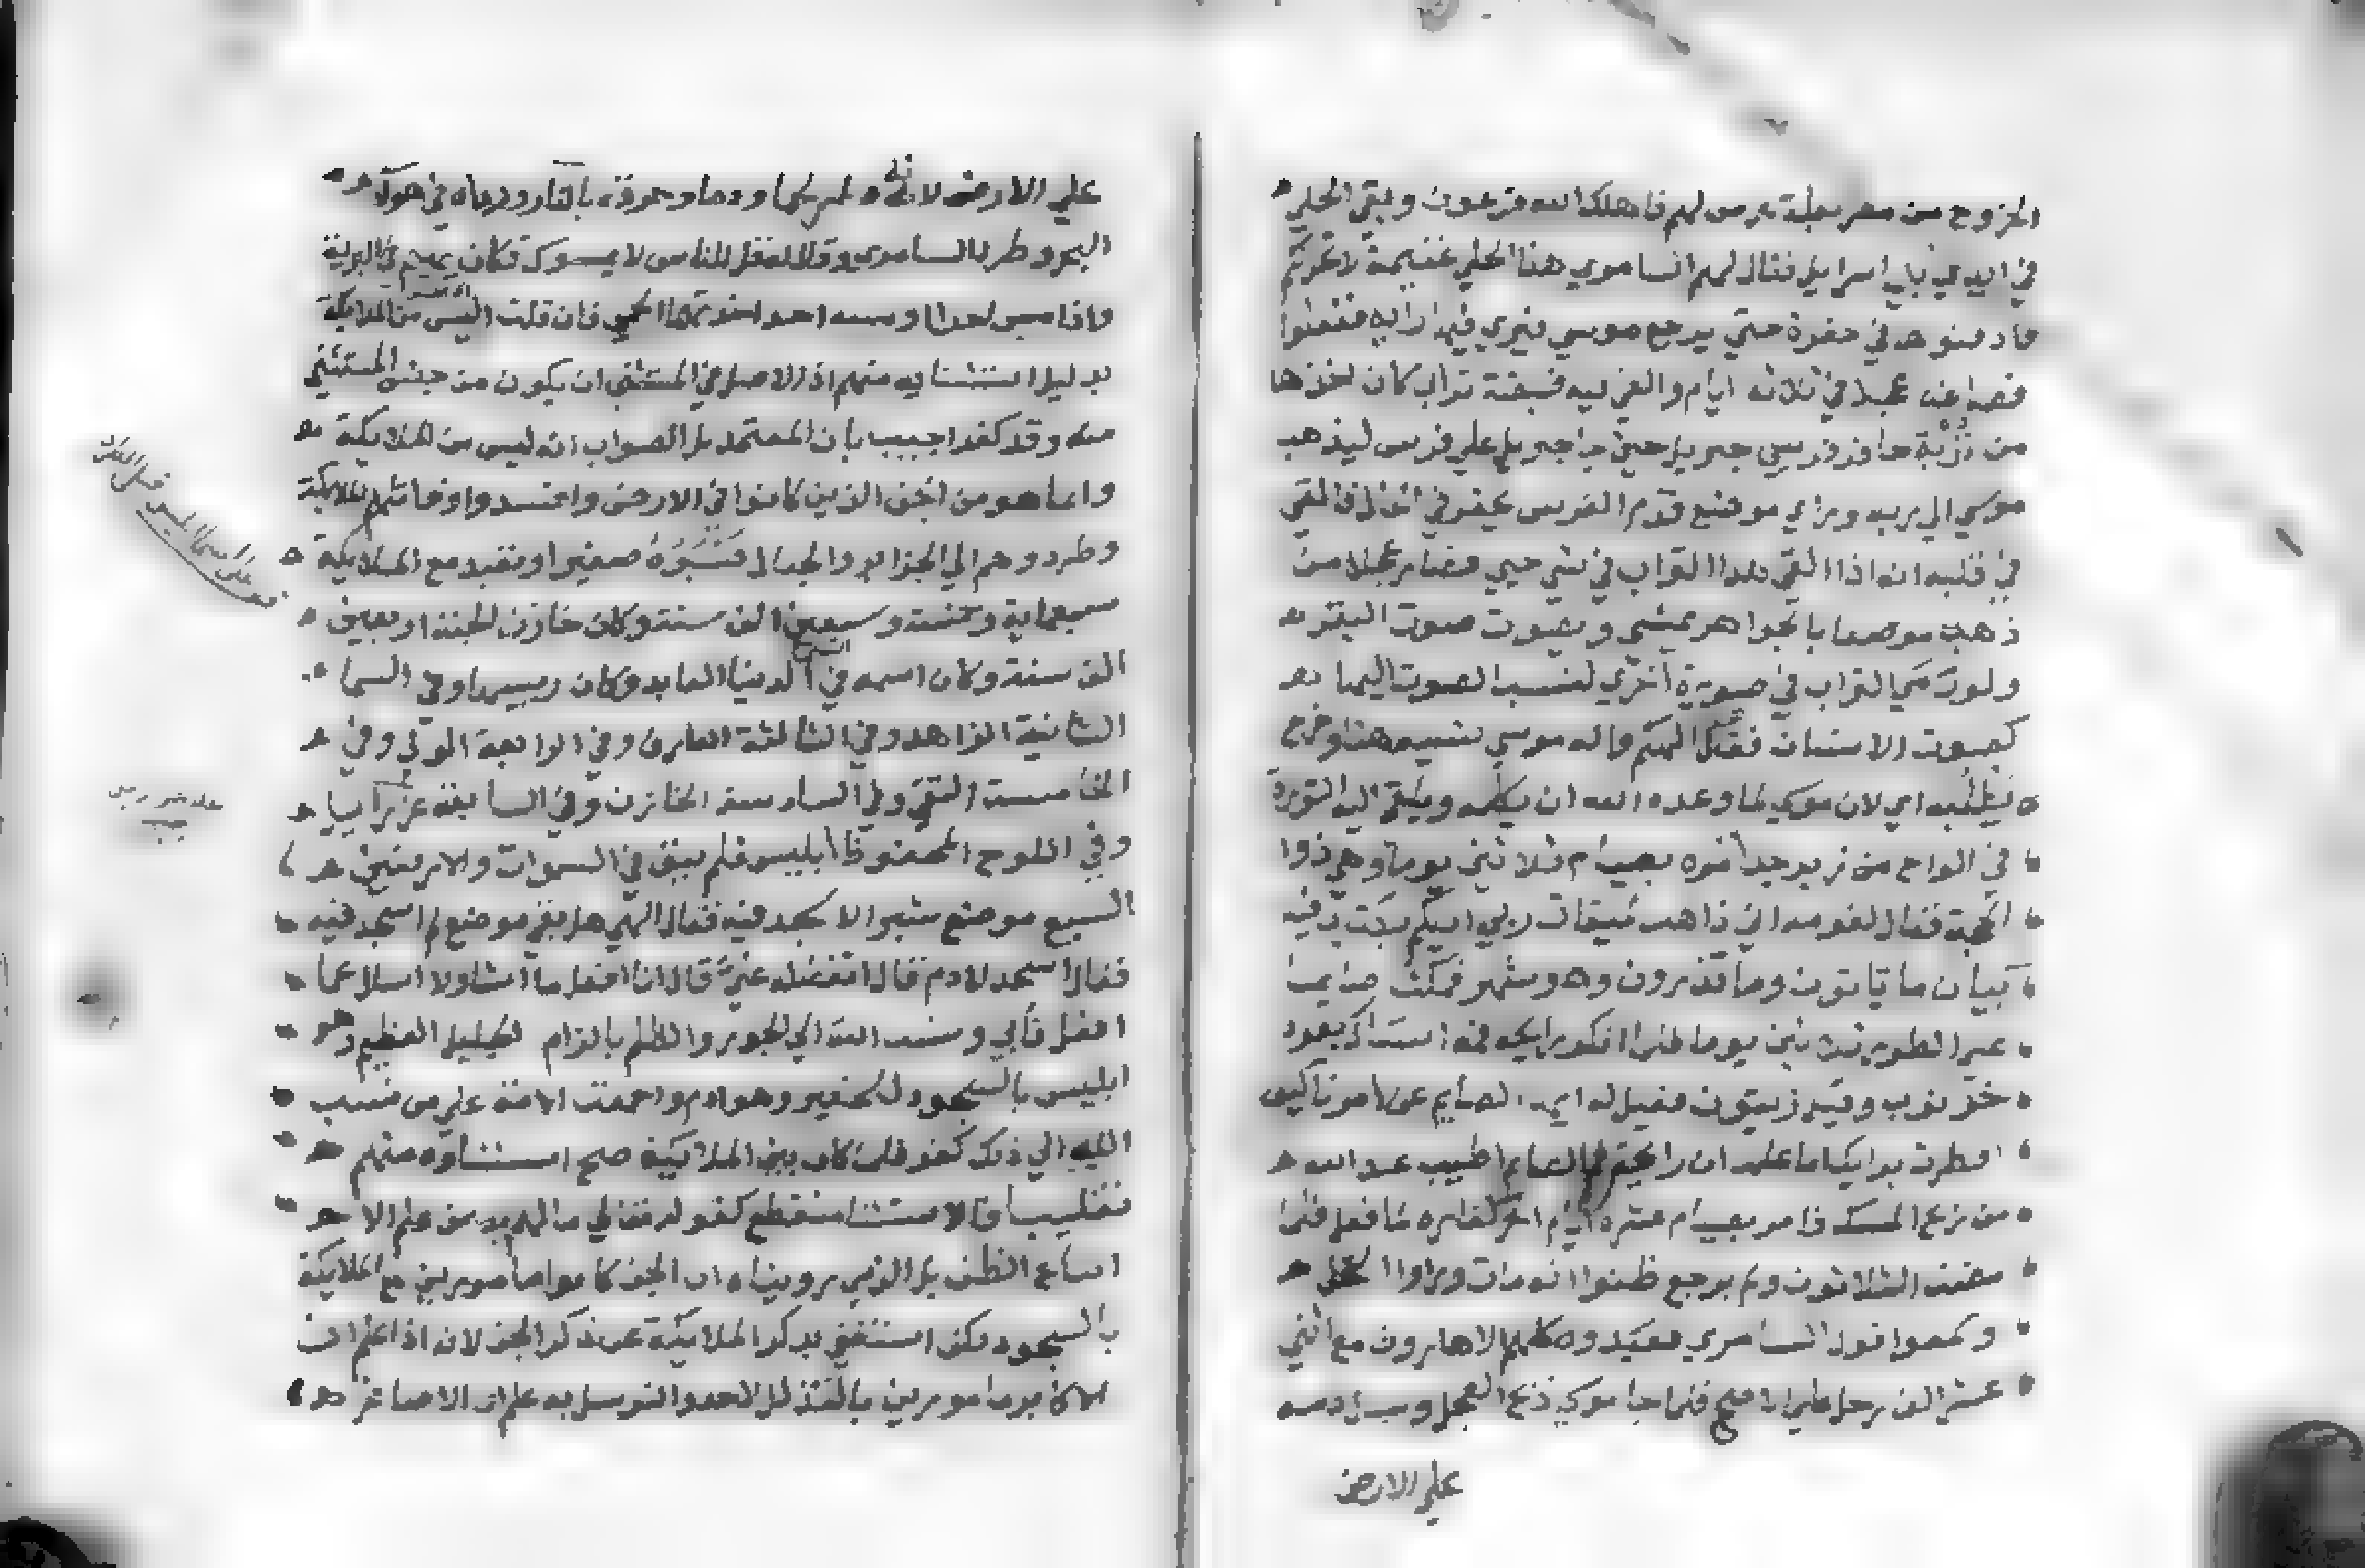 الخروج من مصر بعلة عرس لهم فاهلك الله فرعون وبقي الحلي
في ايدي بني اسرايل فقال لهم السامري هذا الحلي غنيمة لا تحل لكم
فادفنوه في حفرة حتي يرجع موسي فيري فيها رايه ففعلوا
فصاغه عجلا في ثلاثة ايام والقي فيه قبضة تراب كان اخذها
من تربة حافر فرس جبريل حين جا جبريل علي فرس ليذهب
موسي الي ربه وراي موضع قدم الفرس يخضر في الحال فالقي
في قلبه انه اذا القي هذا التراب في شي حيي فصار عجلا من
ذهب مرصعا بالجواهر يمشي ويصوت صوت البقر
ولو رمي التراب في صورة اخري لنسب الصوت اليها
كصوت الانسان فقال الهكم واله موسي نسيه هنا وخرج
يطلبه اي لان موسي لما وعده الله ان يكلمه ويلقي اليه التورية
في الواح من زبرجد امره بصيام ثلاثين يوما وهي ذوا
الحجة فقال لقومه اني ذاهب لميقات ربي اتيكم بكتاب فيه
بيان ما تاتون وما تذرون وهو شهر فمكث صايما
علي الطور ثلاثين يوما فلما انكر رايحة فمه استاك بعود
خرنوب وقيل زيتون فقيل له ايها الصايم
افطرت برايك اما علمت ان رايحة فم الصايم اطيب عند الله
من ريح المسك فامر بصيام عشرة ايام اخر كفارة لما فعل فلما
مضت الثلاثون ولم يرجع ظنوا انه مات وراوا العجل
وسمعوا قول السامري فعبدوه كلهم الا هارون مع اثني
عشر الف رجل علي الاصح فلما جا موسي ذبح العجل وسال دمه
علي الارض
علي الارض لانه صار لحما ودما وحرقه بالنار ورماه في
البحر وطرد السامري وقال للناس لا يمسوك فكان يهيم في البرية
واذا مس احدا او مسه احد اخذتهما الحمي فان قلت اليس من الملايكة
بدليل استثنايه منهم اذ الاصل في المستثني ان يكون من جنس المستثني
منه وقد كفر اجيب بان المعتمد بل الصواب انه ليس من الملايكة
وانما هو من الجن الذين كانوا في الارض وافسدوا فقاتلهم الملايكة
وطردوهم الي الجزاير والجبال صغيرا وتعبد مع الملايكة
سبعماية وخمسة وسبعين الف سنة وكان خازن الجنة اربعين
الف سنة وكان اسمه في الدنيا العابد وكان رييسها وفي السما
الثانية الزاهد وفي الثالثة العارف وفي الرابعة الولي وفي
الخامسة التقي وفي السادسة الخازن وفي السابعة عزازيل
وفي اللوح المحفوظ ابليس فلم يبق في السموات والارضين
السبع موضع شبر الا سجد فيه فقال الهي هل بقي موضع لم اسجد فيه
فقال اسجد لادم قال اتفضله علي قال انا افعل ما اشا ولا اسال عما
افعل فابي ونسب الله الي الجور والظلم بالزام الجليل العظيم وهو
ابليس بالسجود للحقير وهو ادم واجمعت الامة علي من نسب
الله الي ذلك كفر فلما كان بين الملايكة صح استثناوه منهم
تغليبا فالاستثنا منقطع كقوله تعالي ما لهم به من علم الا
اتباع الظن بل الذي رويناه ان الجن كانوا مامورين مع الملايكة
بالسجود لكن استغني بذكر الملايكة عن ذكر الجن لانه اذا علم ان
الاكابر مامورين بالتذلل لاحد والتوسل به علم ان الاصاغر